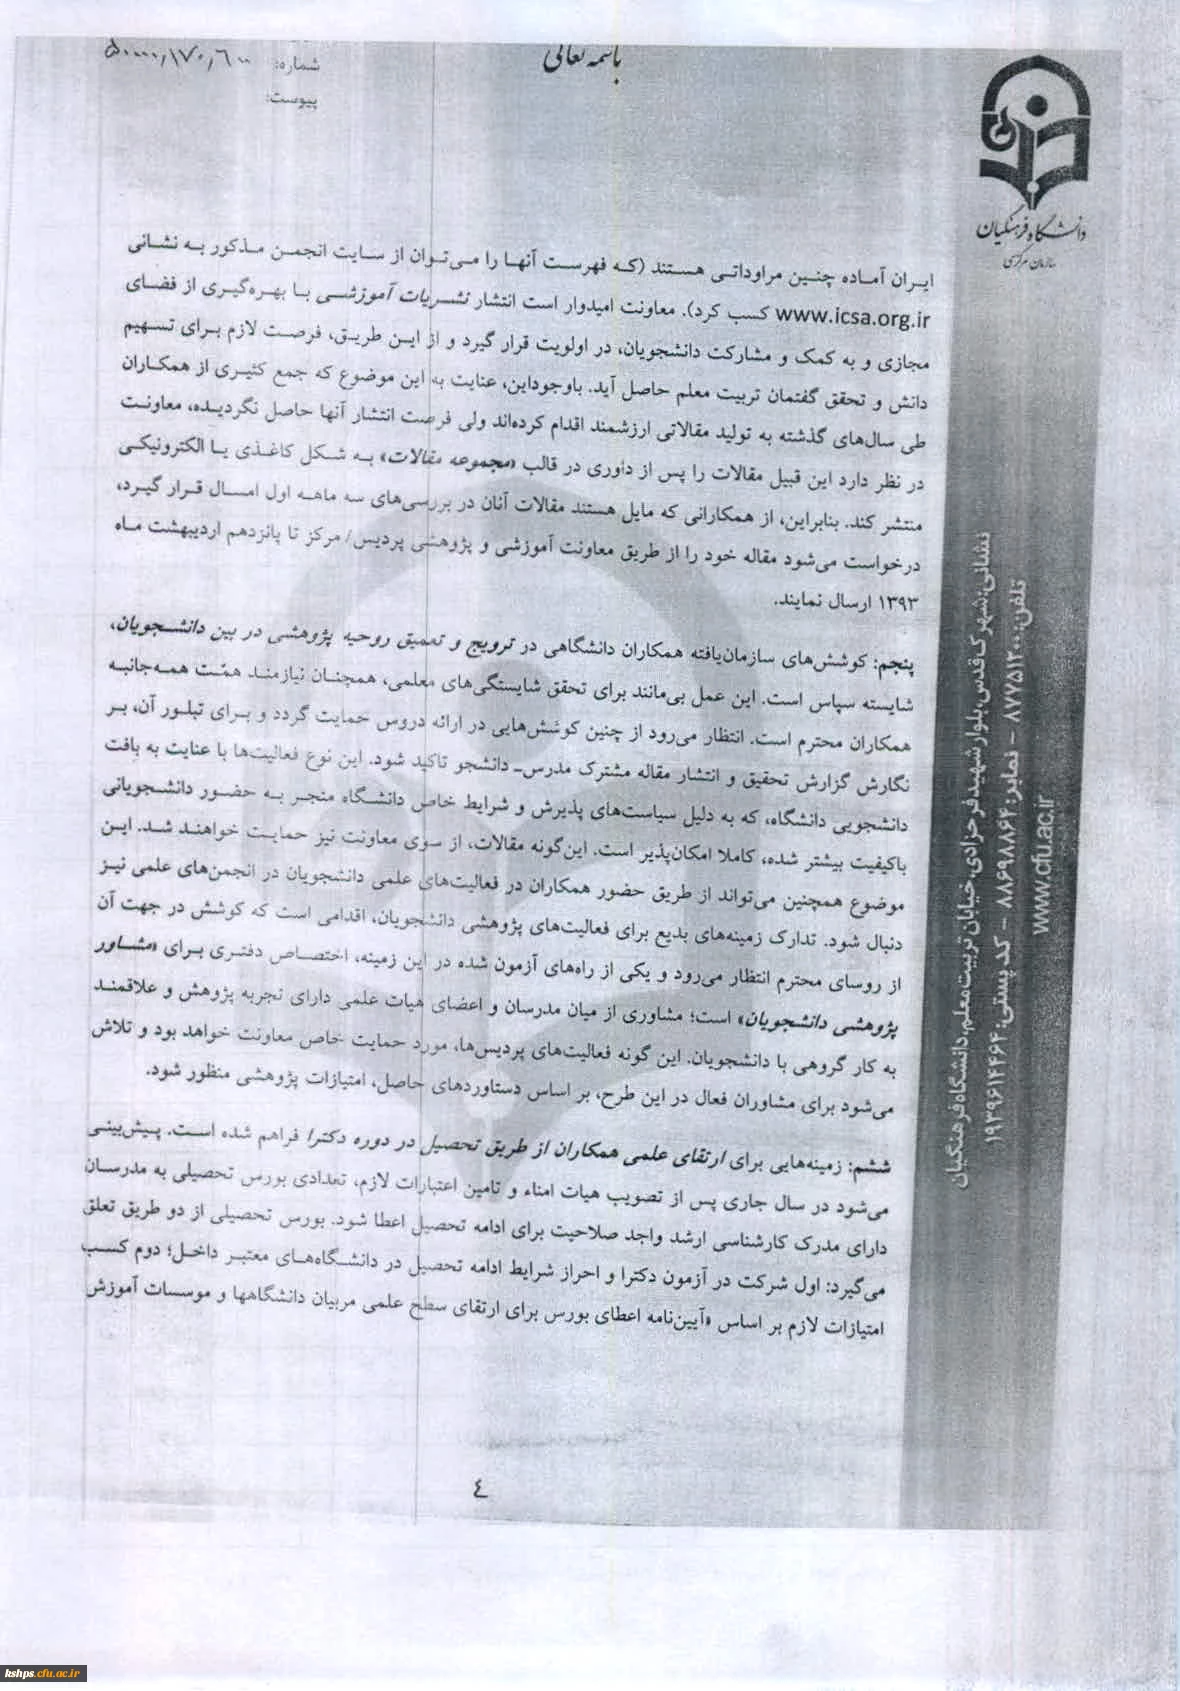 باسمه تعالی
شماره: ۵۰۰۰۰٫۱۷۰٫۶۰۰
پیوست:
دانشگاه فرهنگیان
سازمان مرکزی
ایران آماده چنین مراوداتی هستند (که فهرست آنها را می‌توان از سایت انجمن مذکور به نشانی
www.icsa.org.ir کسب کرد). معاونت امیدوار است انتشار نشریات آموزشی با بهره‌گیری از فضای
مجازی و به کمک و مشارکت دانشجویان، در اولویت قرار گیرد و از این طریق، فرصت لازم برای تسهیم
دانش و تحقق گفتمان تربیت معلم حاصل آید. باوجوداین، عنایت به این موضوع که جمع کثیری از همکاران
طی سال‌های گذشته به تولید مقالاتی ارزشمند اقدام کرده‌اند ولی فرصت انتشار آنها حاصل نگردیده، معاونت
در نظر دارد این قبیل مقالات را پس از داوری در قالب «مجموعه مقالات» به شکل کاغذی یا الکترونیکی
منتشر کند. بنابراین، از همکارانی که مایل هستند مقالات آنان در بررسی‌های سه ماهه اول امسال قرار گیرد،
درخواست می‌شود مقاله خود را از طریق معاونت آموزشی و پژوهشی پردیس/ مرکز تا پانزدهم اردیبهشت ماه
۱۳۹۳ ارسال نمایند.
پنجم: کوشش‌های سازمان‌یافته همکاران دانشگاهی در ترویج و تعمیق روحیه پژوهشی در بین دانشجویان،
شایسته سپاس است. این عمل بی‌مانند برای تحقق شایستگی‌های معلمی، همچنان نیازمند همت همه‌جانبه
همکاران محترم است. انتظار می‌رود از چنین کوشش‌هایی در ارائه دروس حمایت گردد و برای تبلور آن، بر
نگارش گزارش تحقیق و انتشار مقاله مشترک مدرس- دانشجو تاکید شود. این نوع فعالیت‌ها با عنایت به بافت
دانشجویی دانشگاه، که به دلیل سیاست‌های پذیرش و شرایط خاص دانشگاه منجر به حضور دانشجویانی
باکیفیت بیشتر شده، کاملا امکان‌پذیر است. این‌گونه مقالات، از سوی معاونت نیز حمایت خواهند شد. این
موضوع همچنین می‌تواند از طریق حضور همکاران در فعالیت‌های علمی دانشجویان در انجمن‌های علمی نیز
دنبال شود. تدارک زمینه‌های بدیع برای فعالیت‌های پژوهشی دانشجویان، اقدامی است که کوشش در جهت آن
از روسای محترم انتظار می‌رود و یکی از راه‌های آزمون شده در این زمینه، اختصاص دفتری برای «مشاور
پژوهشی دانشجویان» است؛ مشاوری از میان مدرسان و اعضای هیات علمی دارای تجربه پژوهش و علاقمند
به کار گروهی با دانشجویان. این گونه فعالیت‌های پردیس‌ها، مورد حمایت خاص معاونت خواهد بود و تلاش
می‌شود برای مشاوران فعال در این طرح، بر اساس دستاوردهای حاصل، امتیازات پژوهشی منظور شود.
ششم: زمینه‌هایی برای ارتقای علمی همکاران از طریق تحصیل در دوره دکترا فراهم شده است. پیش‌بینی
می‌شود در سال جاری پس از تصویب هیات امناء و تامین اعتبارات لازم، تعدادی بورس تحصیلی به مدرسان
دارای مدرک کارشناسی ارشد واجد صلاحیت برای ادامه تحصیل اعطا شود. بورس تحصیلی از دو طریق تعلق
می‌گیرد: اول شرکت در آزمون دکترا و احراز شرایط ادامه تحصیل در دانشگاه‌های معتبر داخل؛ دوم کسب
امتیازات لازم بر اساس «آیین‌نامه اعطای بورس برای ارتقای سطح علمی مربیان دانشگاهها و موسسات آموزش
٤
نشانی: شهرک قدس، بلوار شهید فرحزادی، خیابان تربیت معلم، دانشگاه فرهنگیان
تلفن: ۸۷۷۵۱۲۰۰۰ – نمابر: ۸۸۶۹۸۸۶۴ – کد پستی: ۱۹۳۹۶۱۴۴۶۴
www.cfu.ac.ir
kshps.cfu.ac.ir